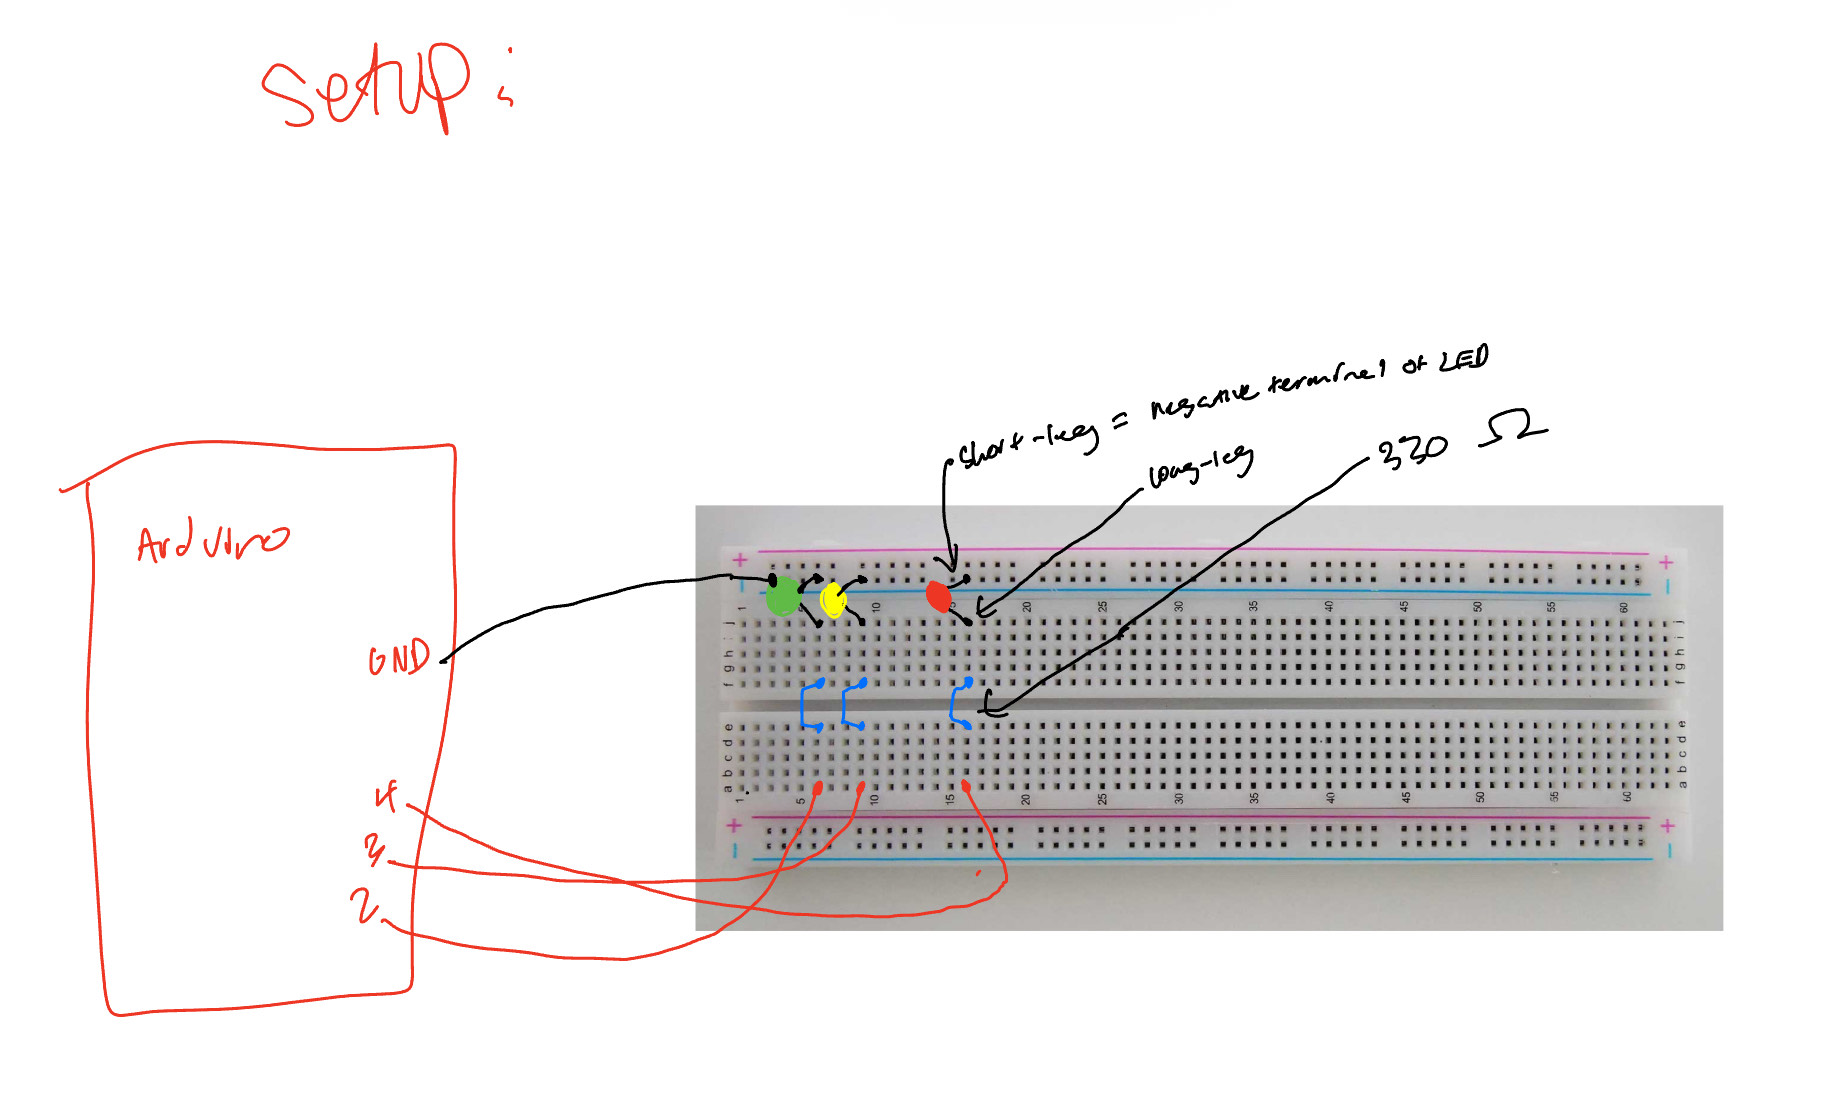 setup:
short-leg = negative terminal of LED
long-leg
330 Ω
Arduino
GND
4
3
2
+ +
- -
1 5 10 15 20 25 30 35 40 45 50 55 60
j j
i i
h h
g g
f f
e e
d d
c c
b b
a a
1 5 10 15 20 25 30 35 40 45 50 55 60
+ +
- -